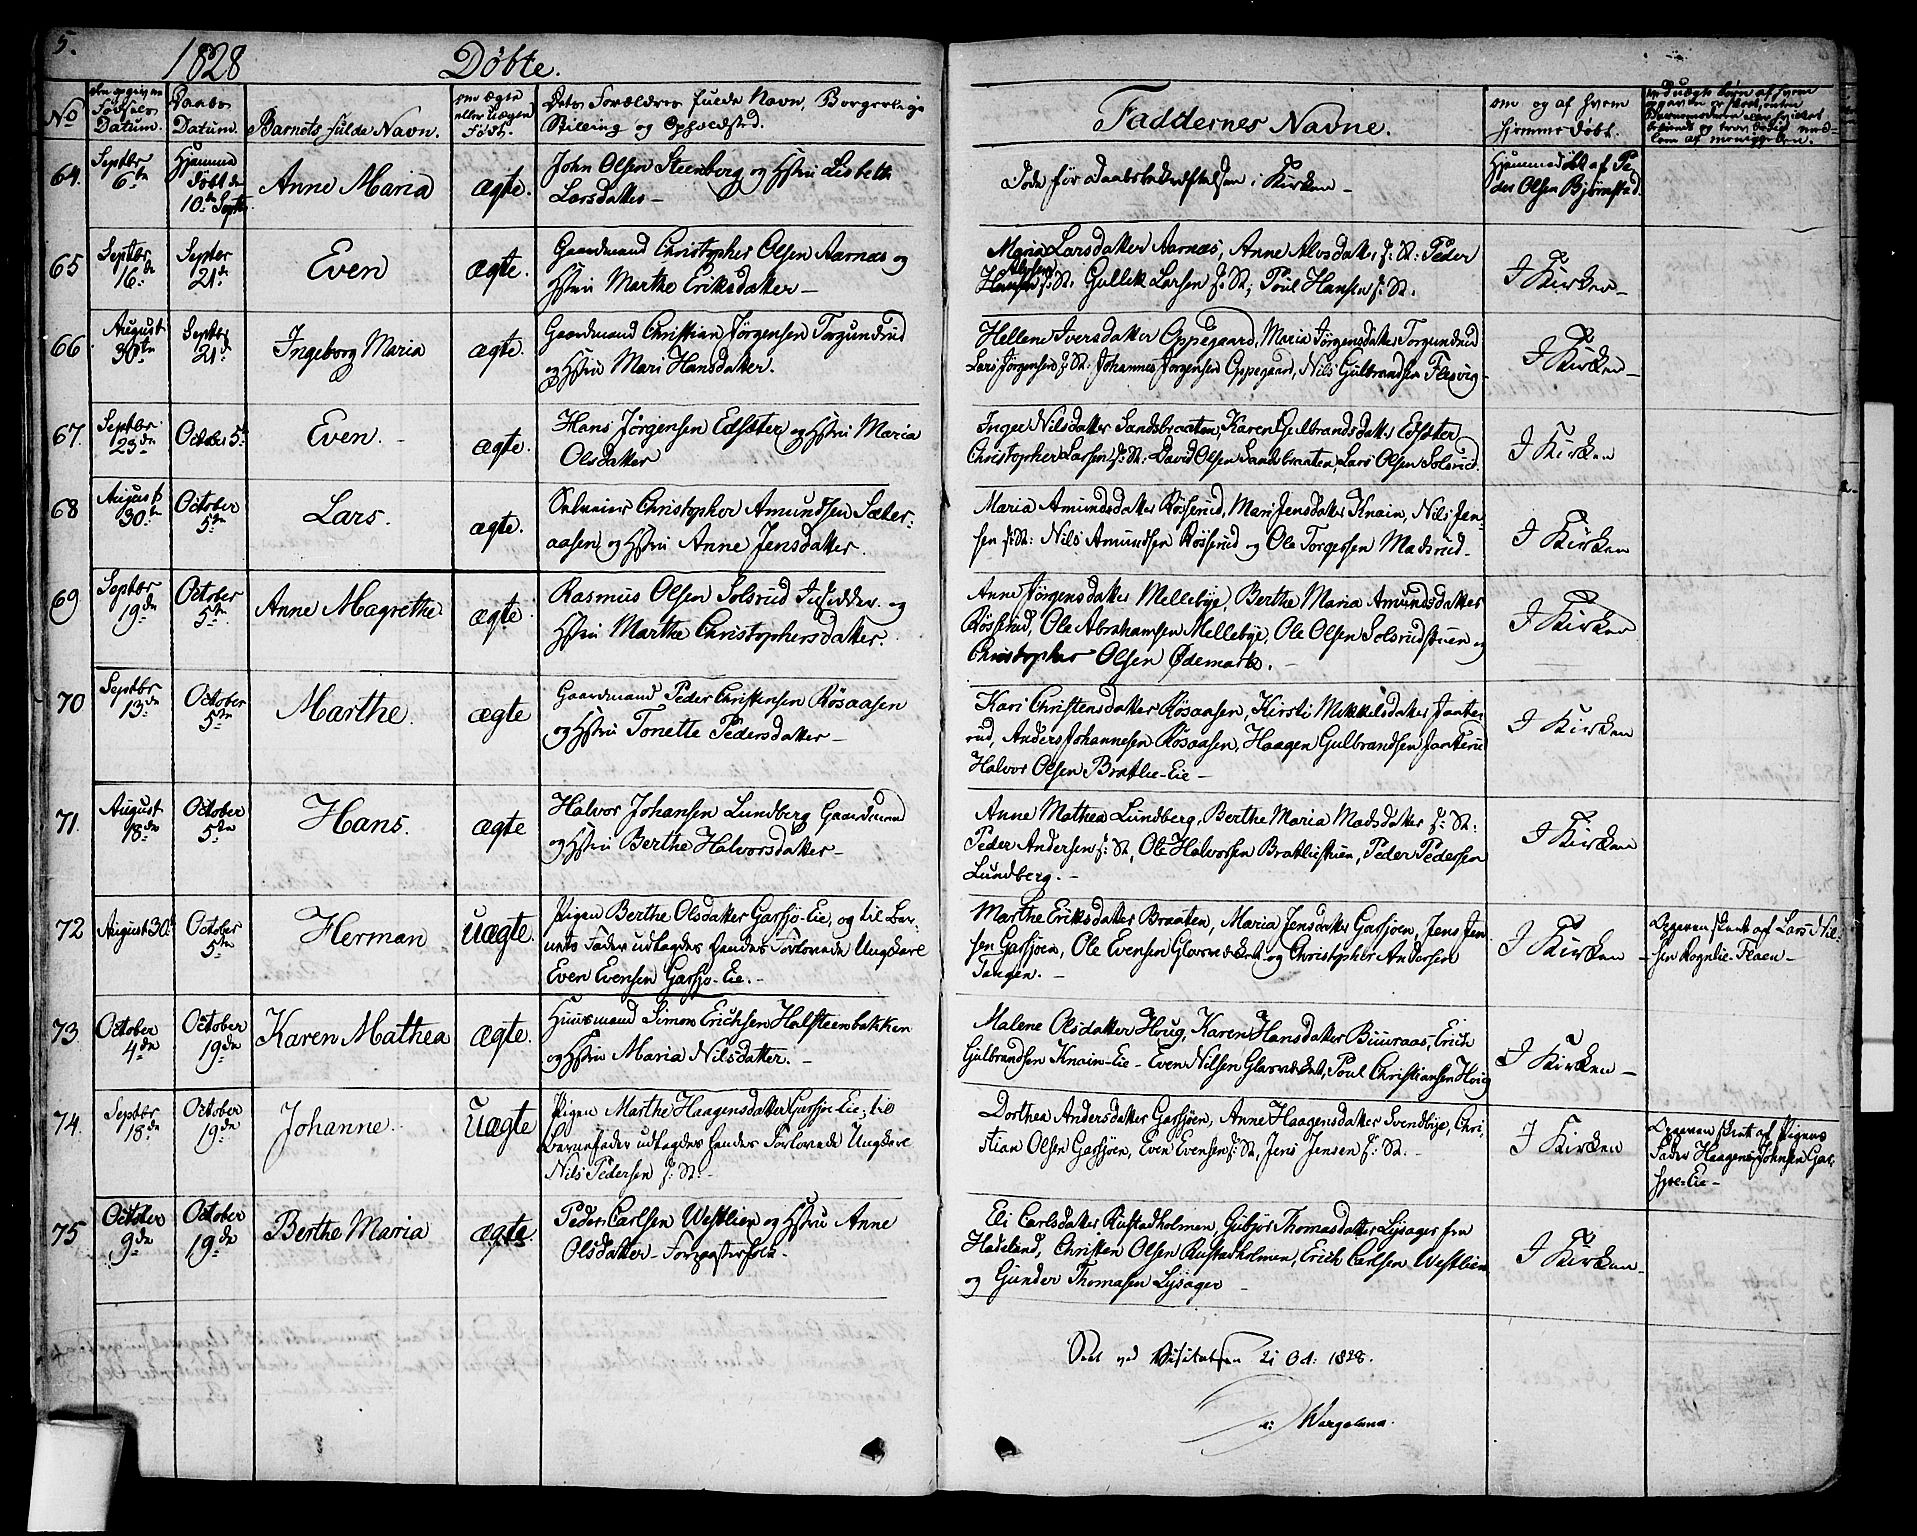 5.
1828 Døbte.
No
den opgivne Fødsels Datum.
Daabs Datum.
Barnets fulde Navn.
om ægte eller uægte Født.
Dets Forældres fulde Navn, Borgerlige
Stilling og Opholdsted.
Faddernes Navne.
om og af hvem
hjemmedøbt.
64. Septbr 6te Hjemme døbt de 10de Septbr. Anne Maria ægte. John Olsen Steenberg og Hstru Lisbeth
Larsdatter –
Døde før Daabsbekræftelsen i Kirken –
Hjemmedøbt af Pe-
der Olsen Bjørnstad.
65 Septbr 16de Septbr 21de Even ægte. Gaardmand Christopher Olsen Aarnæs og
Hstru Marthe Eriksdatter –
Maria Larsdatter Aarnæs, Anne Alvsdatter f: St: Peder
Alvsen f: St. Gullik Larsen f: St, Poul Hansen f: St.
I Kirken –
66 August 30te Septbr 21de Ingeborg Maria ægte. Gaardmand Christian Jørgensen Torgundrud
og Hstru Mari Hansdatter.
Hellene Iversdatter Oppegaard, Maria Jørgensdatter Torgundrud
Lars Jørgensen f: St. Johannes Jørgensen Oppegaard, Nils Gulbrandsen Flesvig –
I Kirken –
67. Septbr 23de October 5te Even. ægte. Hans Jørgensen Edsæter og Hstru Maria
Olsdatter
Inger Nilsdatter Sandsbraaten, Karen Gulbrandsdatter Edsæter
Christopher Larsen f: St: David Olsen Sandsbraaten, Lars Olsen Solsrud.
I Kirken
68 August 30te October 5te Lars. ægte. Selveier Christopher Amundsen Sæter-
aasen og Hstru Anne Jensdatter.
Maria Amundsdatter Røsserud, Mari Jensdatter Knain, Nils Jen-
sen f: St: Nils Amundsen Røsserud og Ole Torgersen Madsrud –
I Kirken
69 Septbr 19de October 5te Anne Magrethe ægte. Rasmus Olsen Solsrud Insidder og
Hstru Marthe Christophersdatter.
Anne Jørgensdatter Mellebye, Berthe Maria Amundsdatter
Røsserud, Ole Abrahamsen Mellebye, Ole Olsen Solsrudstuen og
Christopher Olsen Ødemark. –
I Kirken
70 Septbr 13de October 5te Marthe. ægte Gaardmand Peder Christensen Røsaasen
og Hstru Tonette Pedersdatter –
Kari Christensdatter Røsaasen, Kirsti Mikkelsdatter Jonte-
rud, Anders Johannesen Røsaasen, Haagen Gulbrandsen Jonterud
Halvor Olsen Bratlie-Eie –
I Kirken
71. August 18de October 5te Hans. ægte Halvor Johansen Lundberg Gaardmand
og Hstru Berthe Halvorsdatter –
Anne Mathea Lundberg, Berthe Maria Madsdatter f: St:
Peder Andersen f: St, Ole Halvorsen Bratliestuen, Peder Pedersen
Lundberg. –
I Kirken
72 August 30te October 5te Herman uægte. Pigen Berthe Olsdatter Garsjø-Eie, og til Bar-
nets Fader udlagdes hendes Forlovede Ungkarl
Even Evensen Garsjø-Eie. –
Marthe Eriksdatter Braaten, Maria Jensdatter Garsjøen, Jens Jen-
sen Garsjøen, Ole Evensen Glasværket og Christopher Andersen
Tangen. –
I Kirken –
Opgaven skeet af Lars Nil-
sen Rognlie-Floen –
73 October 4de October 19de Karen Mathea ægte. Huusmand Simon Erichsen Halsteenbakken
og Hstru Maria Nilsdatter. –
Malene Olsdatter Houg, Karen Hansdatter Buuraas, Erich
Gulbrandsen Knain-Eie – Even Nilsen Glasværket, Poul Christiansen Houg
I Kirken –
74. Septbr 18de October 19de Johanne. uægte Pigen Marthe Haagensdatter Garsjø-Eie; til
Barnefader udlagdes hendes Forlovede Ungkarl
Nils Pedersen f: St: –
Dorthea Andersdatter Garsjøen, Anne Haagensdatter Svendbye, Chri-
stian Olsen Garsjøen, Even Evensen f: St, Jens Jensen f: St. –
I Kirken
Opgaven skeet af Pigens
Fader Haagen Johnsen Gar-
sjøe-Eie –
75 October 9de October 19de Berthe Maria ægte. Peder Carlsen Westlien og Hstru Anne
Olsdatter – Forpagterfolk –
Eli Carlsdatter Rustadholmen, Gubjør Thomasdatter Lysager fra
Hadeland, Christen Olsen Rustadholmen, Erich Carlsen Westlien
og Gunder Thomasen Lysager –
I Kirken –
Seet ved Visitatsen 21 Oct: 1828.
Wergeland.